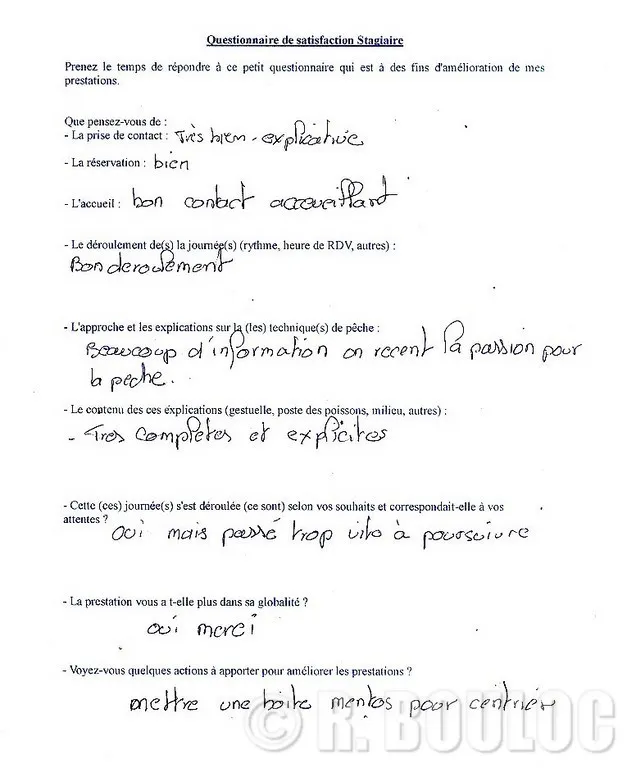 Questionnaire de satisfaction Stagiaire
Prenez le temps de répondre à ce petit questionnaire qui est à des fins d'amélioration de mes
prestations.
Que pensez-vous de :
- La prise de contact : Très bien - explicative
- La réservation : bien
- L'accueil : bon contact accueillant
- Le déroulement de(s) la journée(s) (rythme, heure de RDV, autres) :
Bon deroulement
- L'approche et les explications sur la (les) technique(s) de pêche :
Beaucoup d'information on recent la passion pour
la peche.
- Le contenu des ces éxplications (gestuelle, poste des poissons, milieu, autres) :
- Tres complètes et explicites
- Cette (ces) journée(s) s'est déroulée (ce sont) selon vos souhaits et correspondait-elle à vos
attentes ? oui mais passé trop vite à poursuivre
- La prestation vous a t-elle plus dans sa globalité ?
oui merci
- Voyez-vous quelques actions à apporter pour améliorer les prestations ?
mettre une boite mentos pour
© R. BOULOC